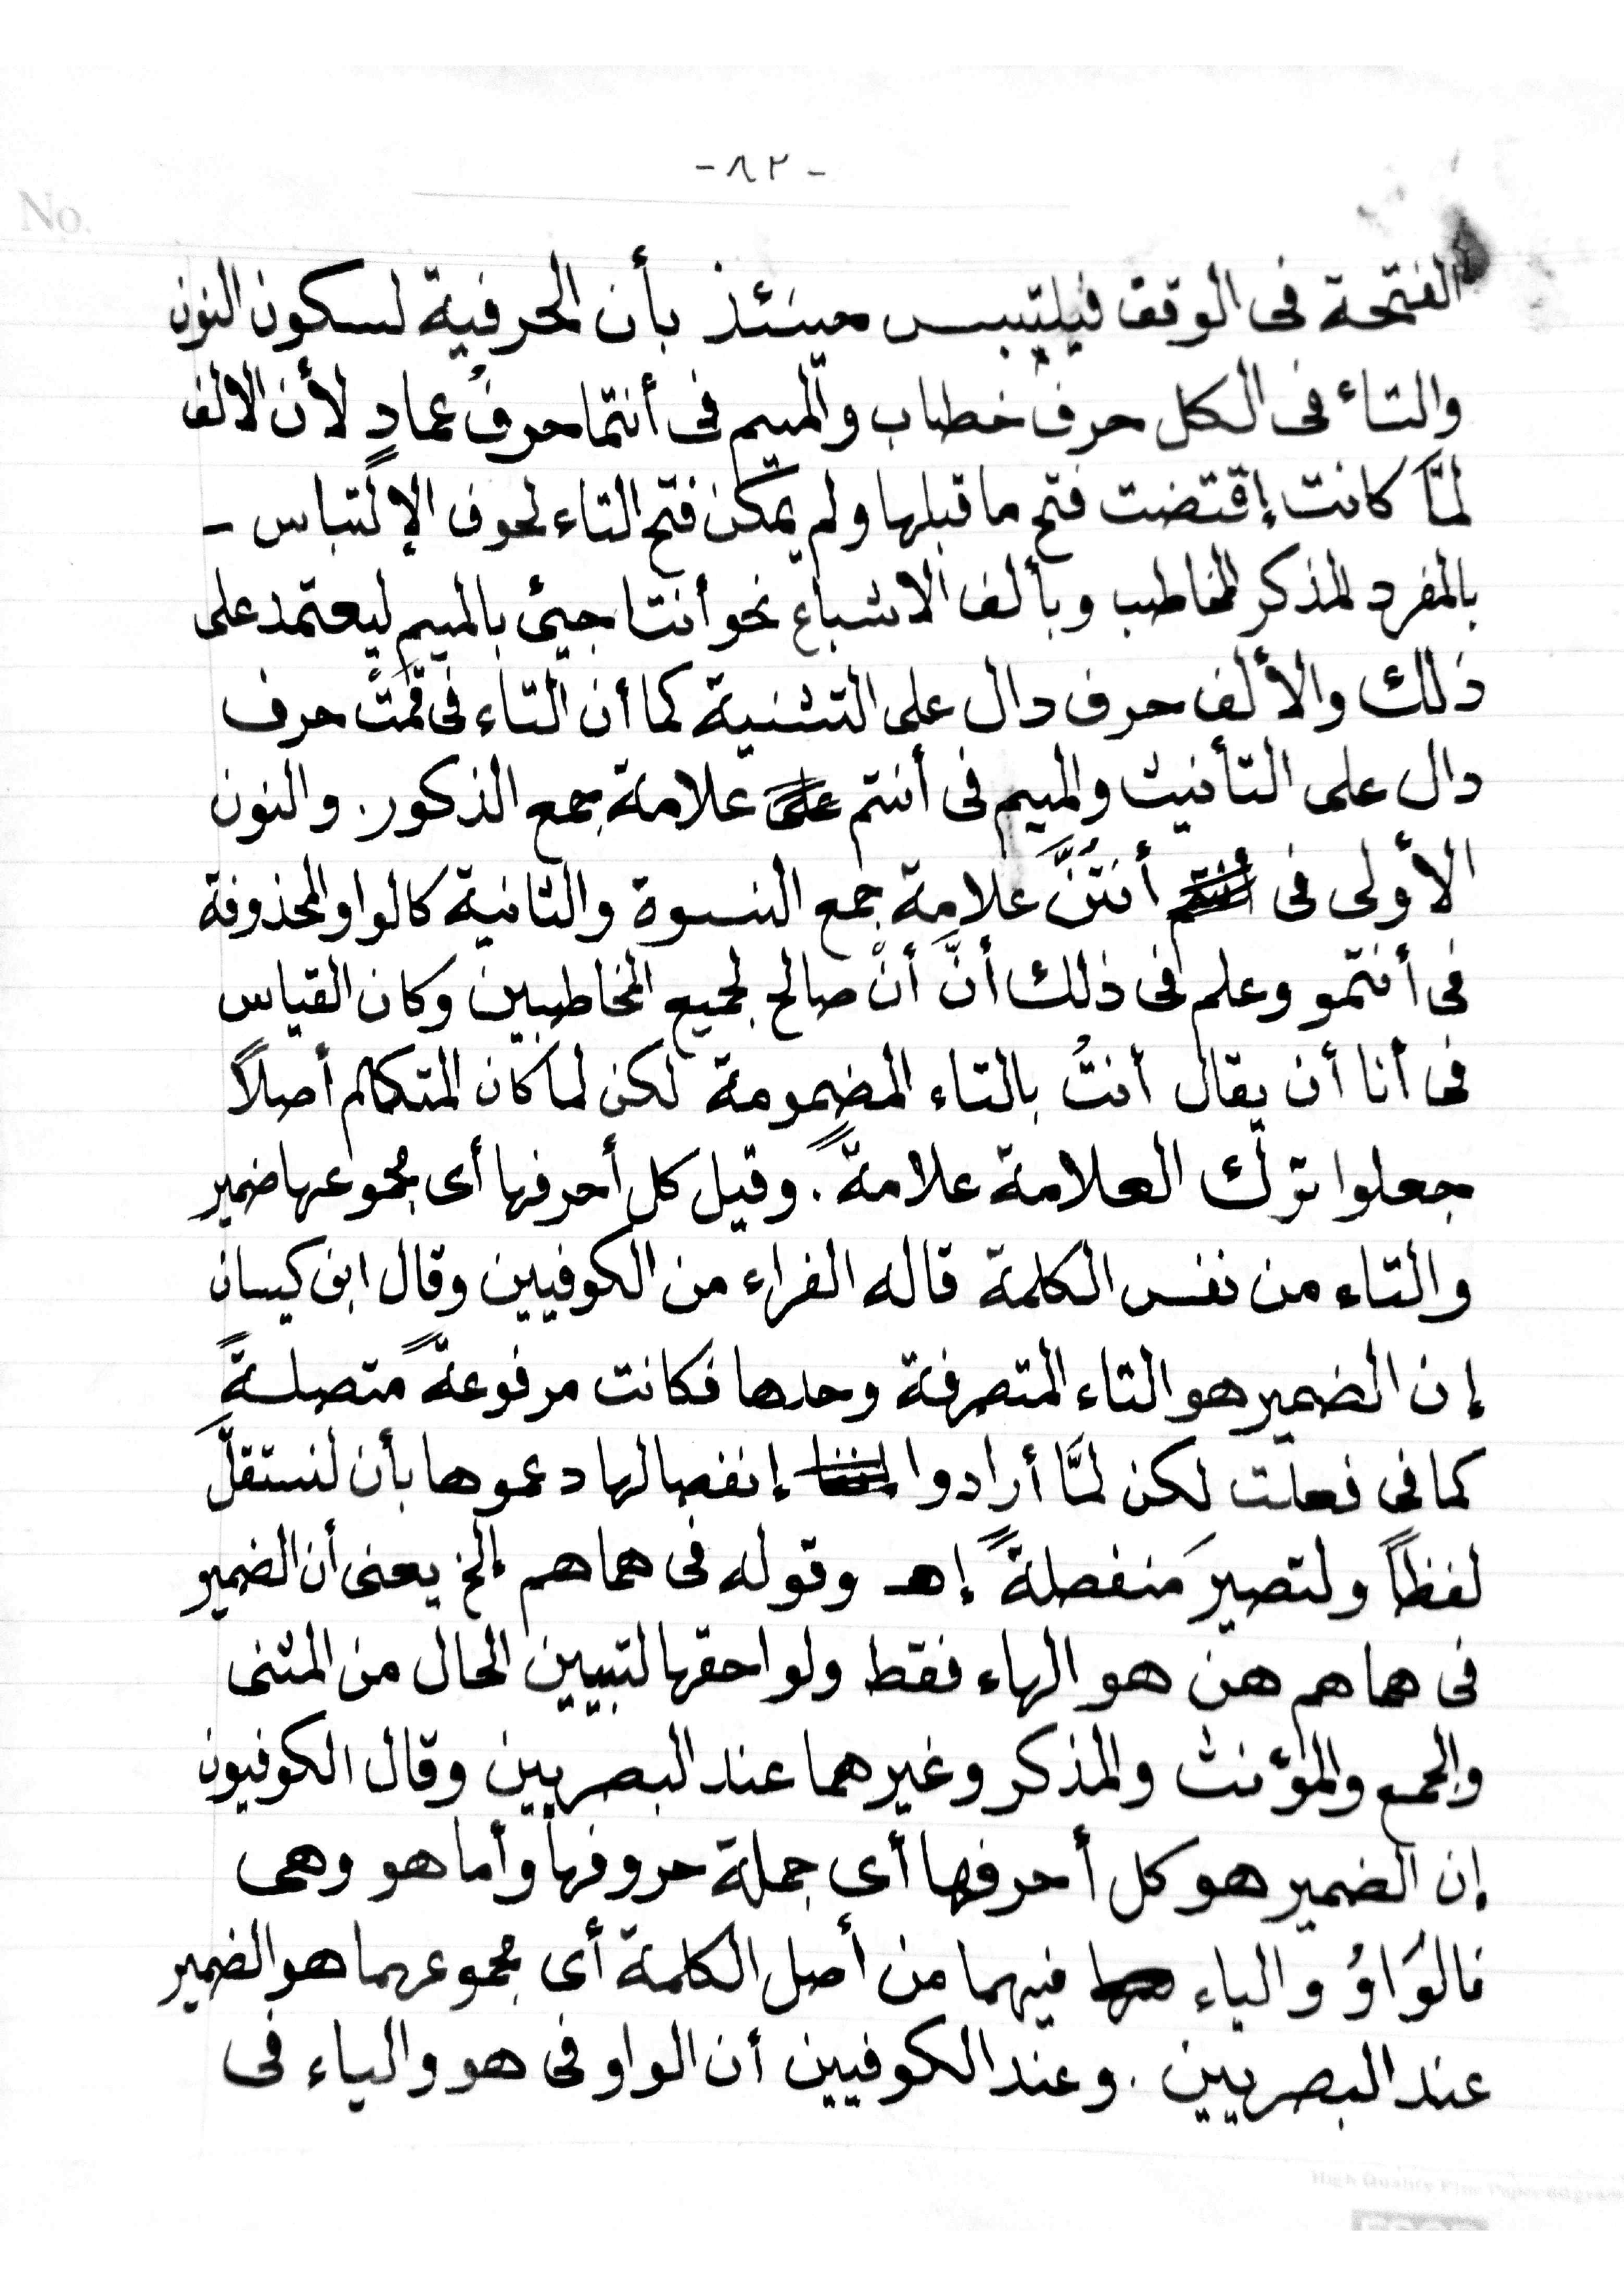 No.
-٨٢-
الفتحة فى الوقف فيلتبس حينئذ بأن الحرفية لسكون النون
والتاء فى الكل حرف خطاب والميم فى أنتما حرفُ عمادٍ لأن الالف
لمَّا كانت إقتضت فتح ما قبلها ولم يمكن فتح التاء لخوف الإلتباس -
بالمفرد المذكر المخاطب وبألف الاشباع نحو أنتا جيئ بالميم ليعتمد على
ذلك والألف حرف دال على التثنية كما أن التاء فى قمتْ حرف
دال على التأنيث والميم فى أنتم علامة جمع الذكور. والنون
الأولى فى أنتُنَّ علامة جمع النسوة والثانية كالواو المحذوفة
فى أنتمو وعلم فى ذلك أنَّ أنْ صالح لجميع المخاطبين وكان القياس
فى أنا أن يقال أنتُ بالتاء المضمومة لكن لما كان المتكلم أصلاً
جعلوا ترك العلامة علامةً. وقيل كل أحرفها أى مجموعها ضمير
والتاء من نفس الكلمة قاله الفراء من الكوفيين وقال ابن كيسان
إن الضمير هو التاء المتصرفة وحدها فكانت مرفوعةً متصلةً
كما فى فعلت لكن لمَّا أرادوا إنفصالها دعموها بأن لنستقلَّ
لفظاً ولتصيرَ منفصلةً إهـ وقوله فى هما هم إلخ يعنى أن الضمير
فى هما هم هن هو الهاء فقط ولواحقها لتبيين الحال من المثنى
والجمع والمؤنث والمذكر وغيرهما عند البصريين وقال الكوفيون
إن الضمير هو كل أحرفها أى جملة حروفها وأما هو وهى
فالوَاوُ والياء فيهما من أصل الكلمة أى مجموعهما هو الضمير
عند البصريين. وعند الكوفيين أن الواو فى هو والياء فى
High Quality Fine Paper 60 gram